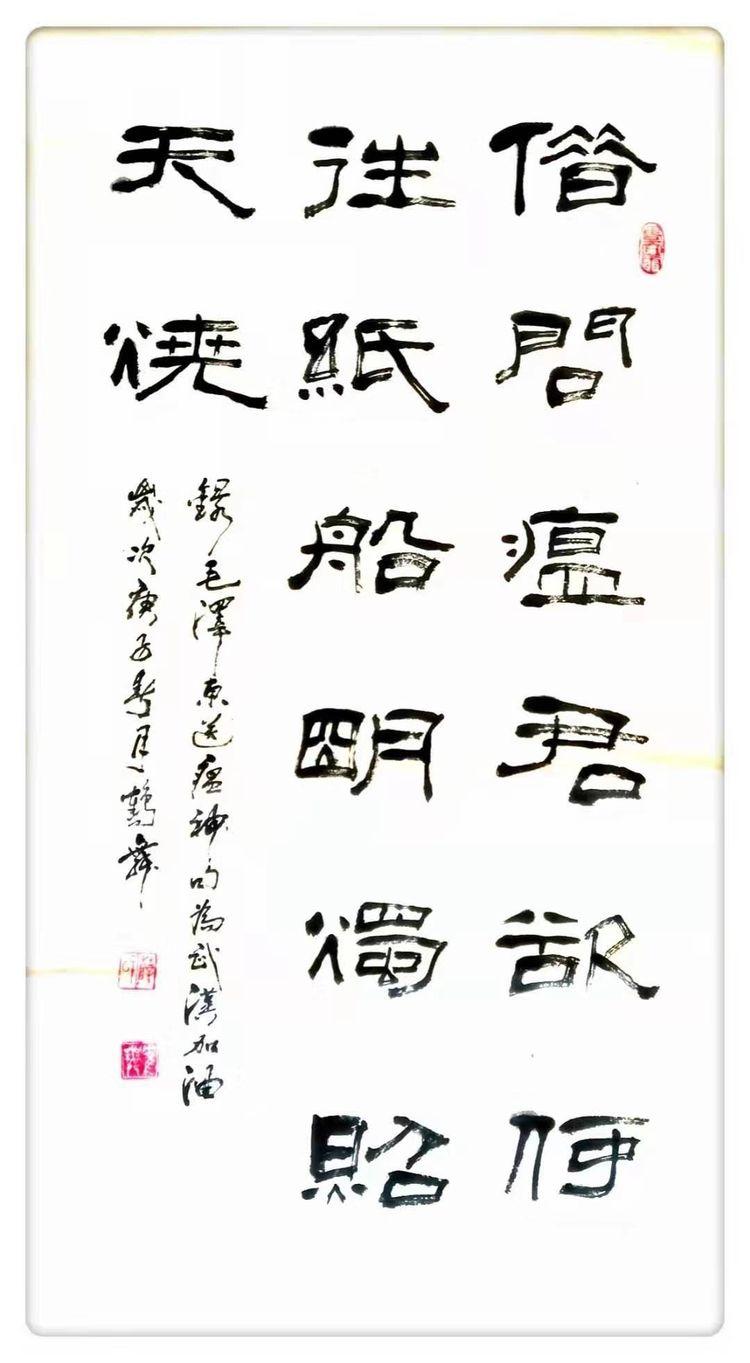 借問瘟君欲何
往紙船明燭照
天燒
錄毛澤東送瘟神句為武漢加油
歲次庚子春月鶴舞